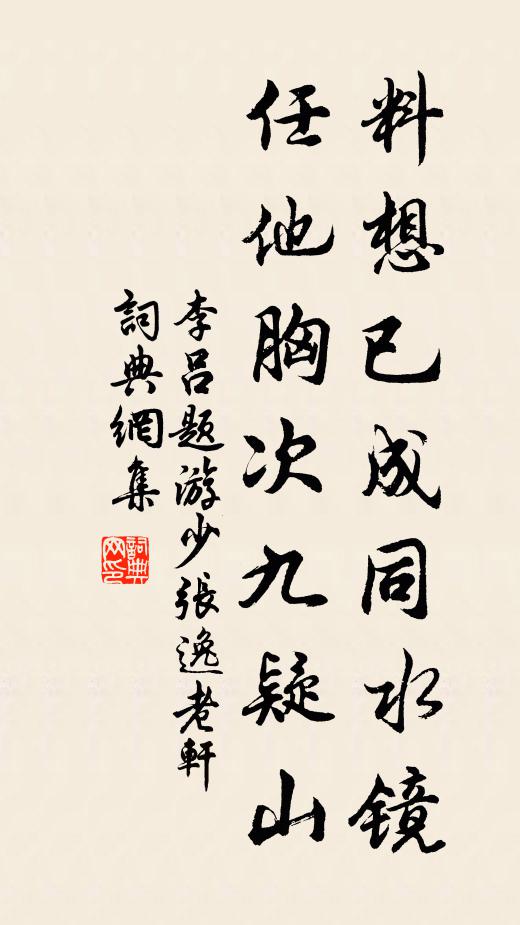 料想已成同水镜
任他胸次九疑山
李吕题游少張逸老軒
詞典網集
詞典网印